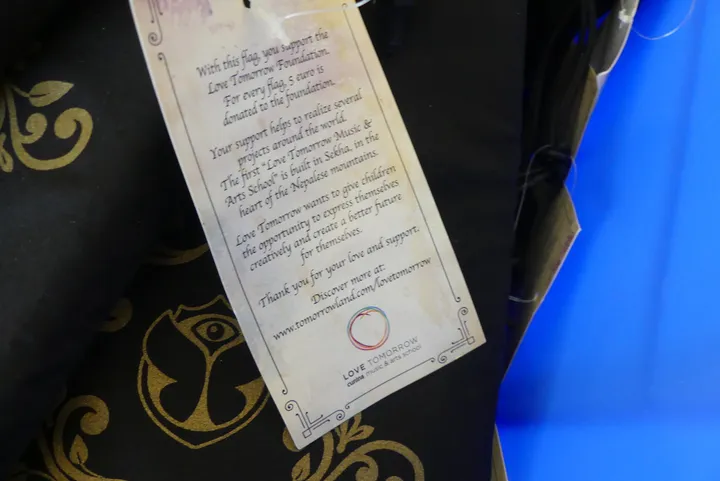 With this flag, you support the
Love Tomorrow Foundation.
For every flag, 5 euro is
donated to the foundation.
Your support helps to realize several
projects around the world.
The first "Love Tomorrow Music &
Arts School" is built in Sekha, in the
heart of the Nepalese mountains.
Love Tomorrow wants to give children
the opportunity to express themselves
creatively and create a better future
for themselves.
Thank you for your love and support.
Discover more at:
www.tomorrowland.com/lovetomorrow
LOVE TOMORROW
music & arts school